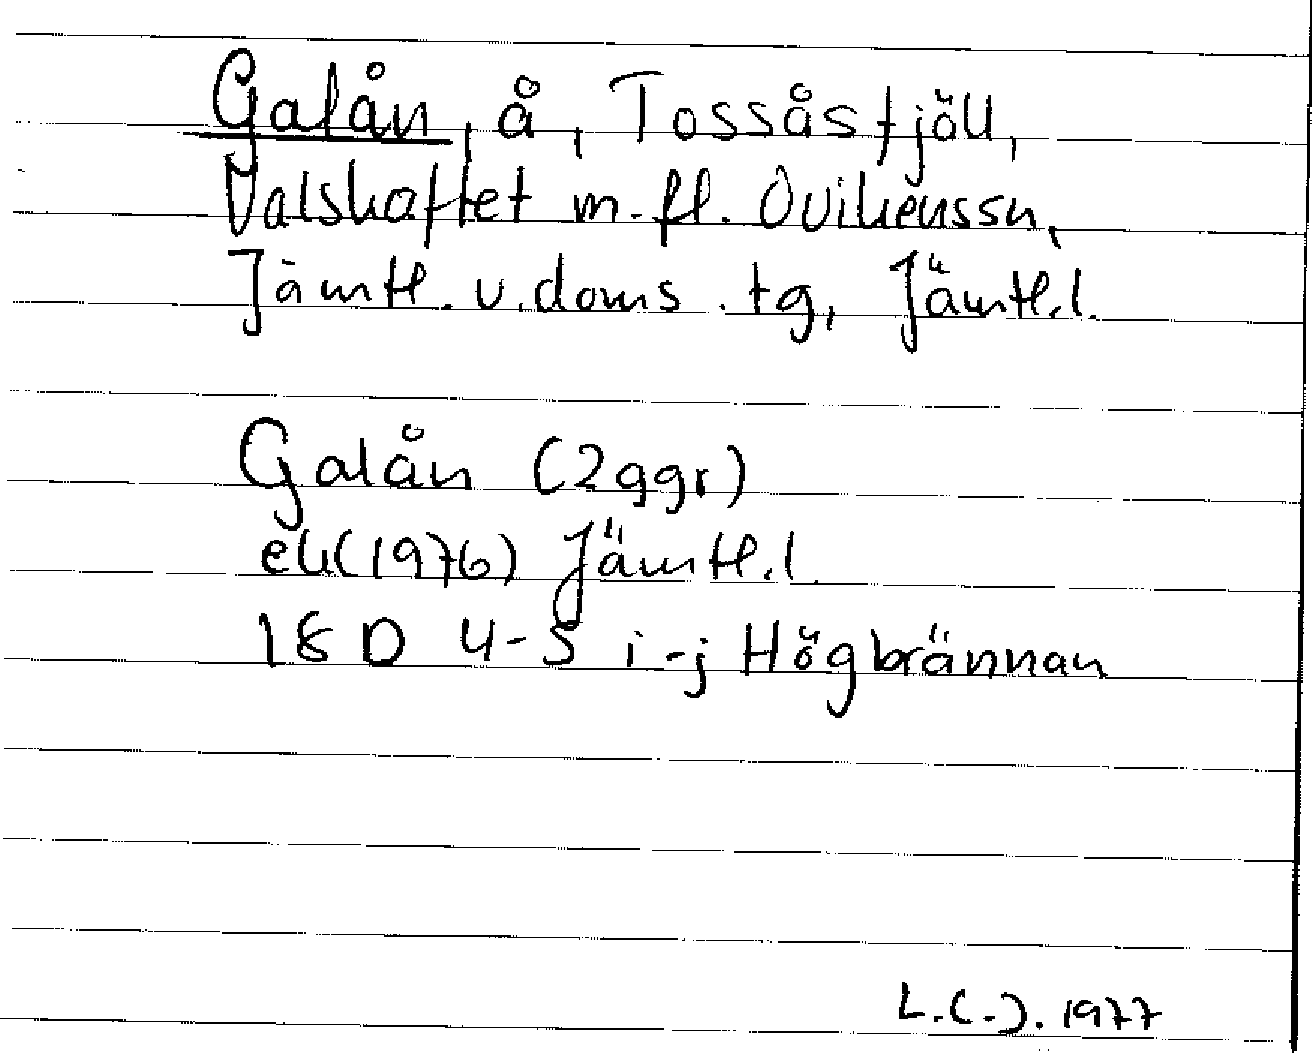 Galån, å, Tossåsfjäll,
Valskaftet m. fl. Ovikenssn,
Jämtl. v. doms. tg, Jämtl. l.
Galån (2ggr)
ek(1976) Jämtl. l.
18 D 4-5 i-j Högbrännan
L.(-). 1977